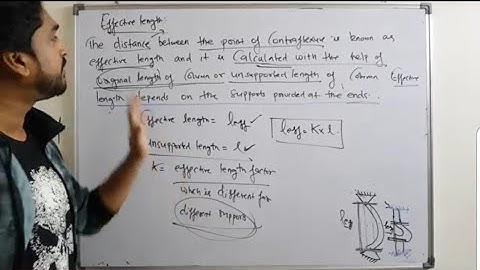 Effective length:
The distance between the point of Contraflexure is known as
effective length and it is Calculated with the help of
original length of Column or unsupported length of Column Effective
length depends on the supports provided at the ends.
Effective length = leff
leff = K × l
Unsupported length = l
K = effective length factor
which is different for
different supports
leff